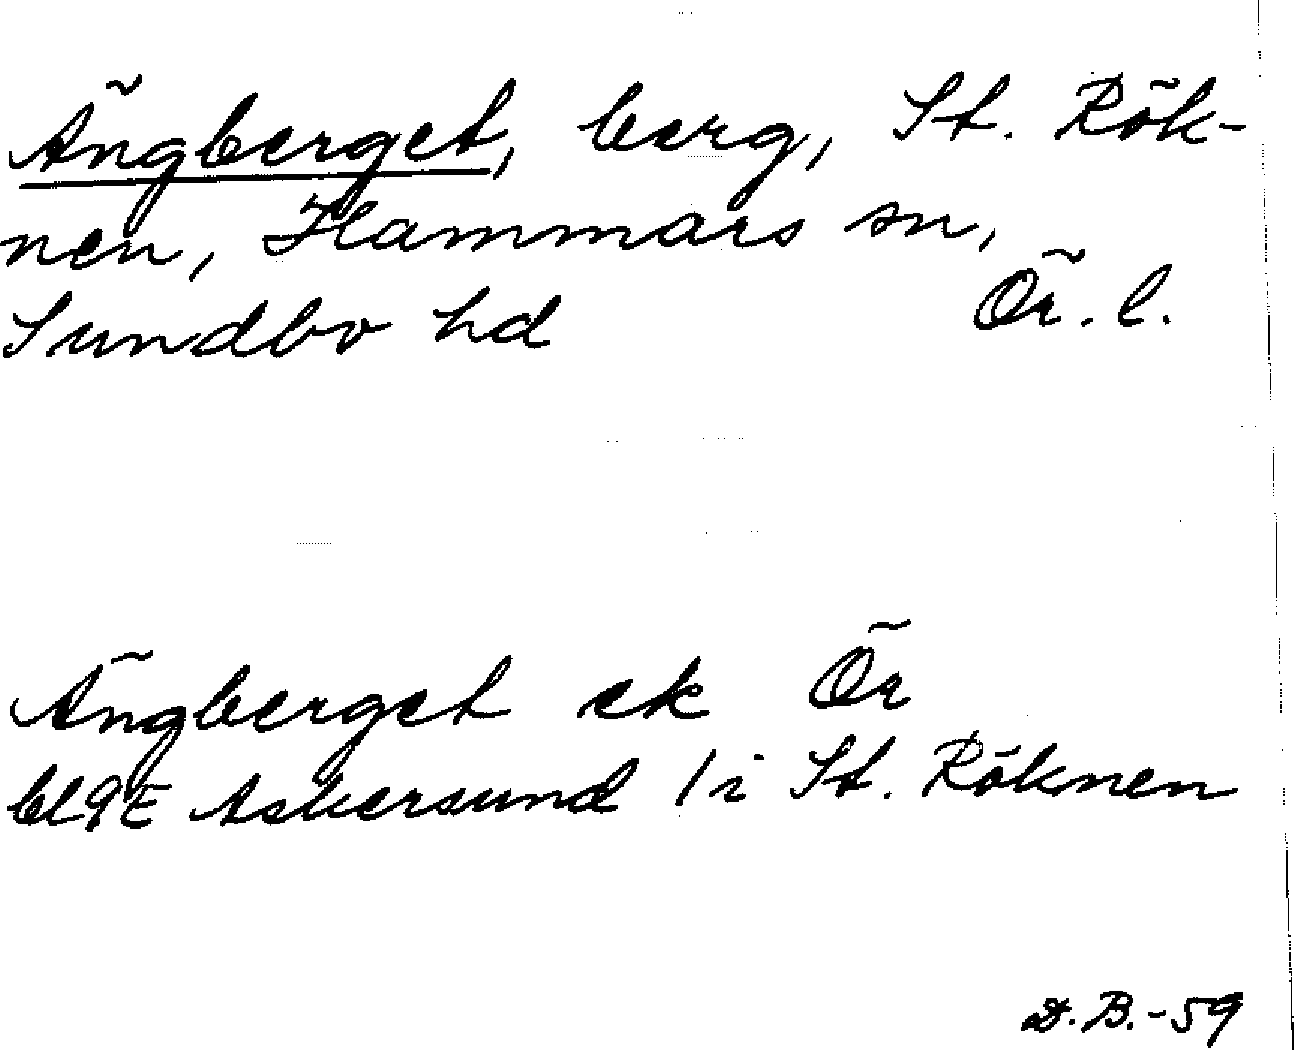 Ängberget, berg, St. Rök-
nen, Hammars sn,
Sundbo hd Ör. l.
Ängberget ek Ör
bl 9E Askersund / i St. Röknen
D.B.-59